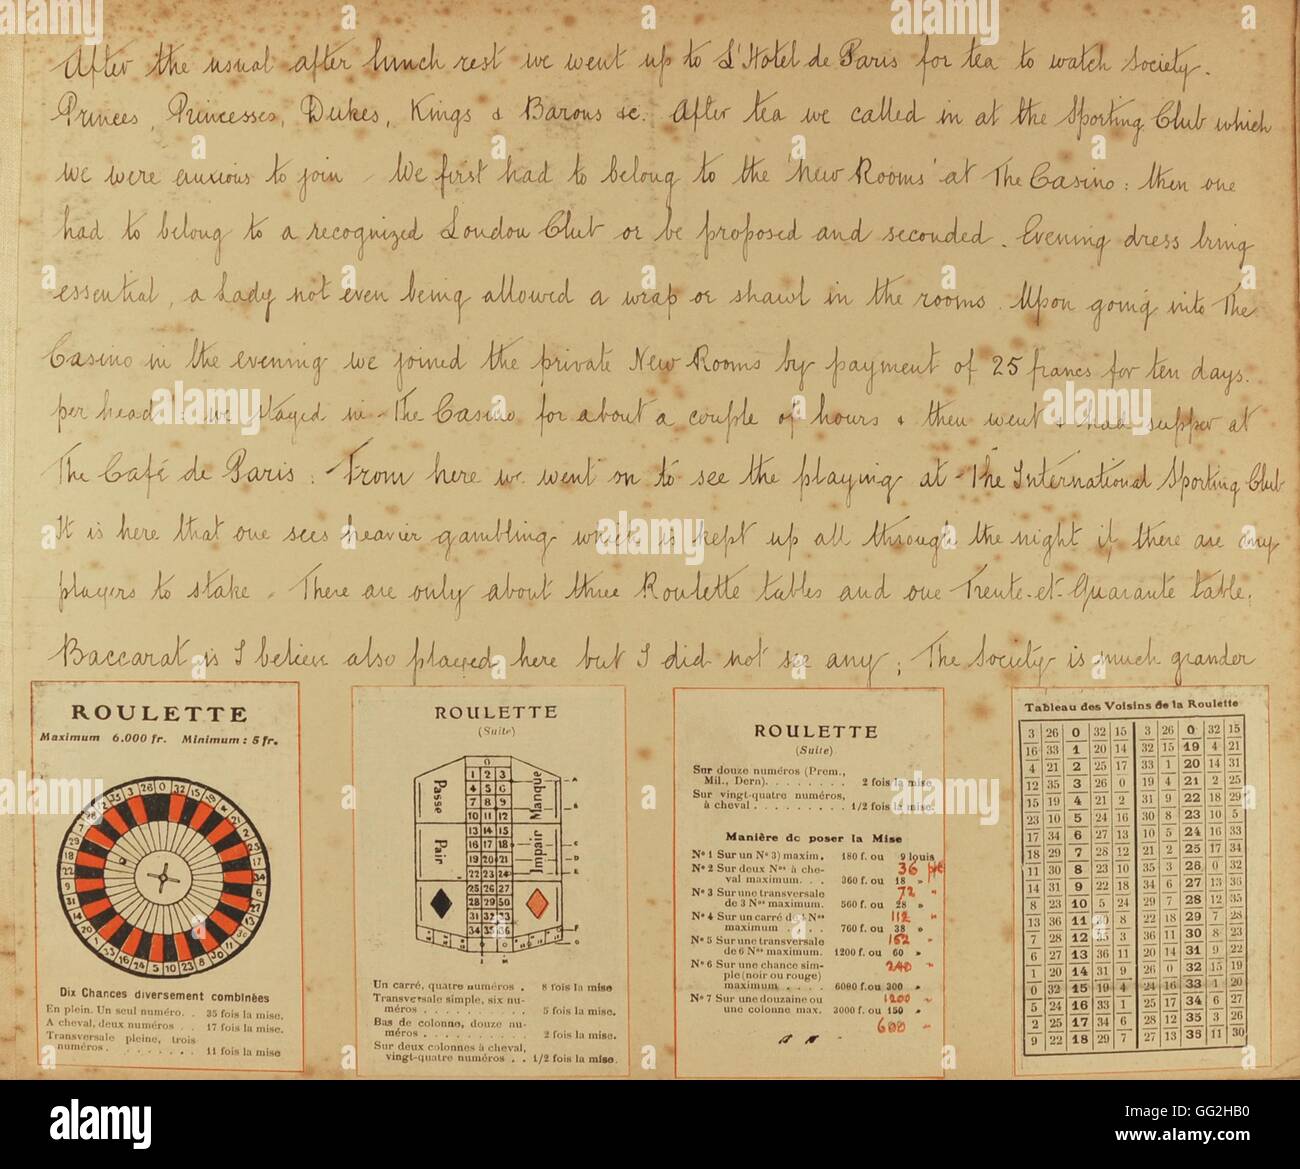 After the usual after lunch rest we went up to L'Hotel de Paris for tea to watch Society.
Princes, Princesses, Dukes, Kings & Barons &c. After tea we called in at the Sporting Club which
we were anxious to join - We first had to belong to the 'New Rooms' at The Casino : then one
had to belong to a recognized London Club or be proposed and seconded. Evening dress bring
essential, a Lady not even being allowed a wrap or shawl in the rooms. Upon going into The
Casino in the evening we joined the private New Rooms by payment of 25 francs for ten days.
per head : we stayed in The Casino for about a couple of hours & then went & had supper at
The Café de Paris. From here we went on to see the playing at The International Sporting Club
It is here that one sees heavier gambling which is kept up all through the night if there are any
players to stake - There are only about three Roulette tables and one Trente-et-Quarante table.
Baccarat is I believe also played here but I did not see any ; The Society is much grander
ROULETTE
Maximum 6.000 fr. Minimum : 5 fr.
Dix Chances diversement combinées
En plein. Un seul numéro. . 35 fois la mise.
A cheval, deux numéros . . 17 fois la mise.
Transversale pleine, trois
numéros. . . . . . . . 11 fois la mise
ROULETTE
(Suite)
0
1 2 3
4 5 6
7 8 9
10 11 12
13 14 15
16 17 18
19 20 21
22 23 24
25 26 27
28 29 30
31 32 33
34 35 36
Passe
Manque
Pair
Impair
Un carré, quatre numéros . 8 fois la mise
Transversale simple, six nu-
méros . . . . . . . . 5 fois la mise.
Bas de colonne, douze nu-
méros . . . . . . . . 2 fois la mise.
Sur deux colonnes à cheval,
vingt-quatre numéros . . 1/2 fois la mise.
ROULETTE
(Suite)
Sur douze numéros (Prem.,
Mil., Dern). . . . . . . . 2 fois la mise.
Sur vingt-quatre numéros,
à cheval . . . . . . . . 1/2 fois la mise.
Manière de poser la Mise
Nº 1 Sur un Nº 3) maxim. 180 f. ou 9 louis
36
Nº 2 Sur deux Nos à che-
val maximum. . . 360 f. ou 18 »
72
Nº 3 Sur une transversale
de 3 Nos maximum. 560 f. ou 28 »
112
Nº 4 Sur un carré de 4 Nos
maximum. . . . 760 f. ou 38 »
152
Nº 5 Sur une transversale
de 6 Nos maximum. 1200 f. ou 60 »
240
Nº 6 Sur une chance sim-
ple (noir ou rouge)
maximum . . . . 6000 f. ou 300 »
1200
Nº 7 Sur une douzaine ou
une colonne max. 3000 f. ou 150 »
600
Tableau des Voisins de la Roulette
3 26 0 32 15 3 26 0 32 15
16 33 1 20 14 32 15 19 4 21
4 21 2 25 17 33 1 20 14 31
12 35 3 26 0 19 4 21 2 25
15 19 4 21 2 31 9 22 18 29
23 10 5 24 16 30 8 23 10 5
17 34 6 27 13 10 5 24 16 33
18 29 7 28 12 21 2 25 17 34
11 30 8 23 10 35 3 26 0 32
14 31 9 22 18 34 6 27 13 36
8 23 10 5 24 29 7 28 12 35
13 36 11 30 8 22 18 29 7 28
7 28 12 35 3 36 11 30 8 23
6 27 13 36 11 20 14 31 9 22
1 20 14 31 9 26 0 32 15 19
0 32 15 19 4 24 16 33 1 20
5 24 16 33 1 25 17 34 6 27
2 25 17 34 6 28 12 35 3 26
9 22 18 29 7 27 13 36 11 30
alamy
Image ID: GG2HB0
www.alamy.com